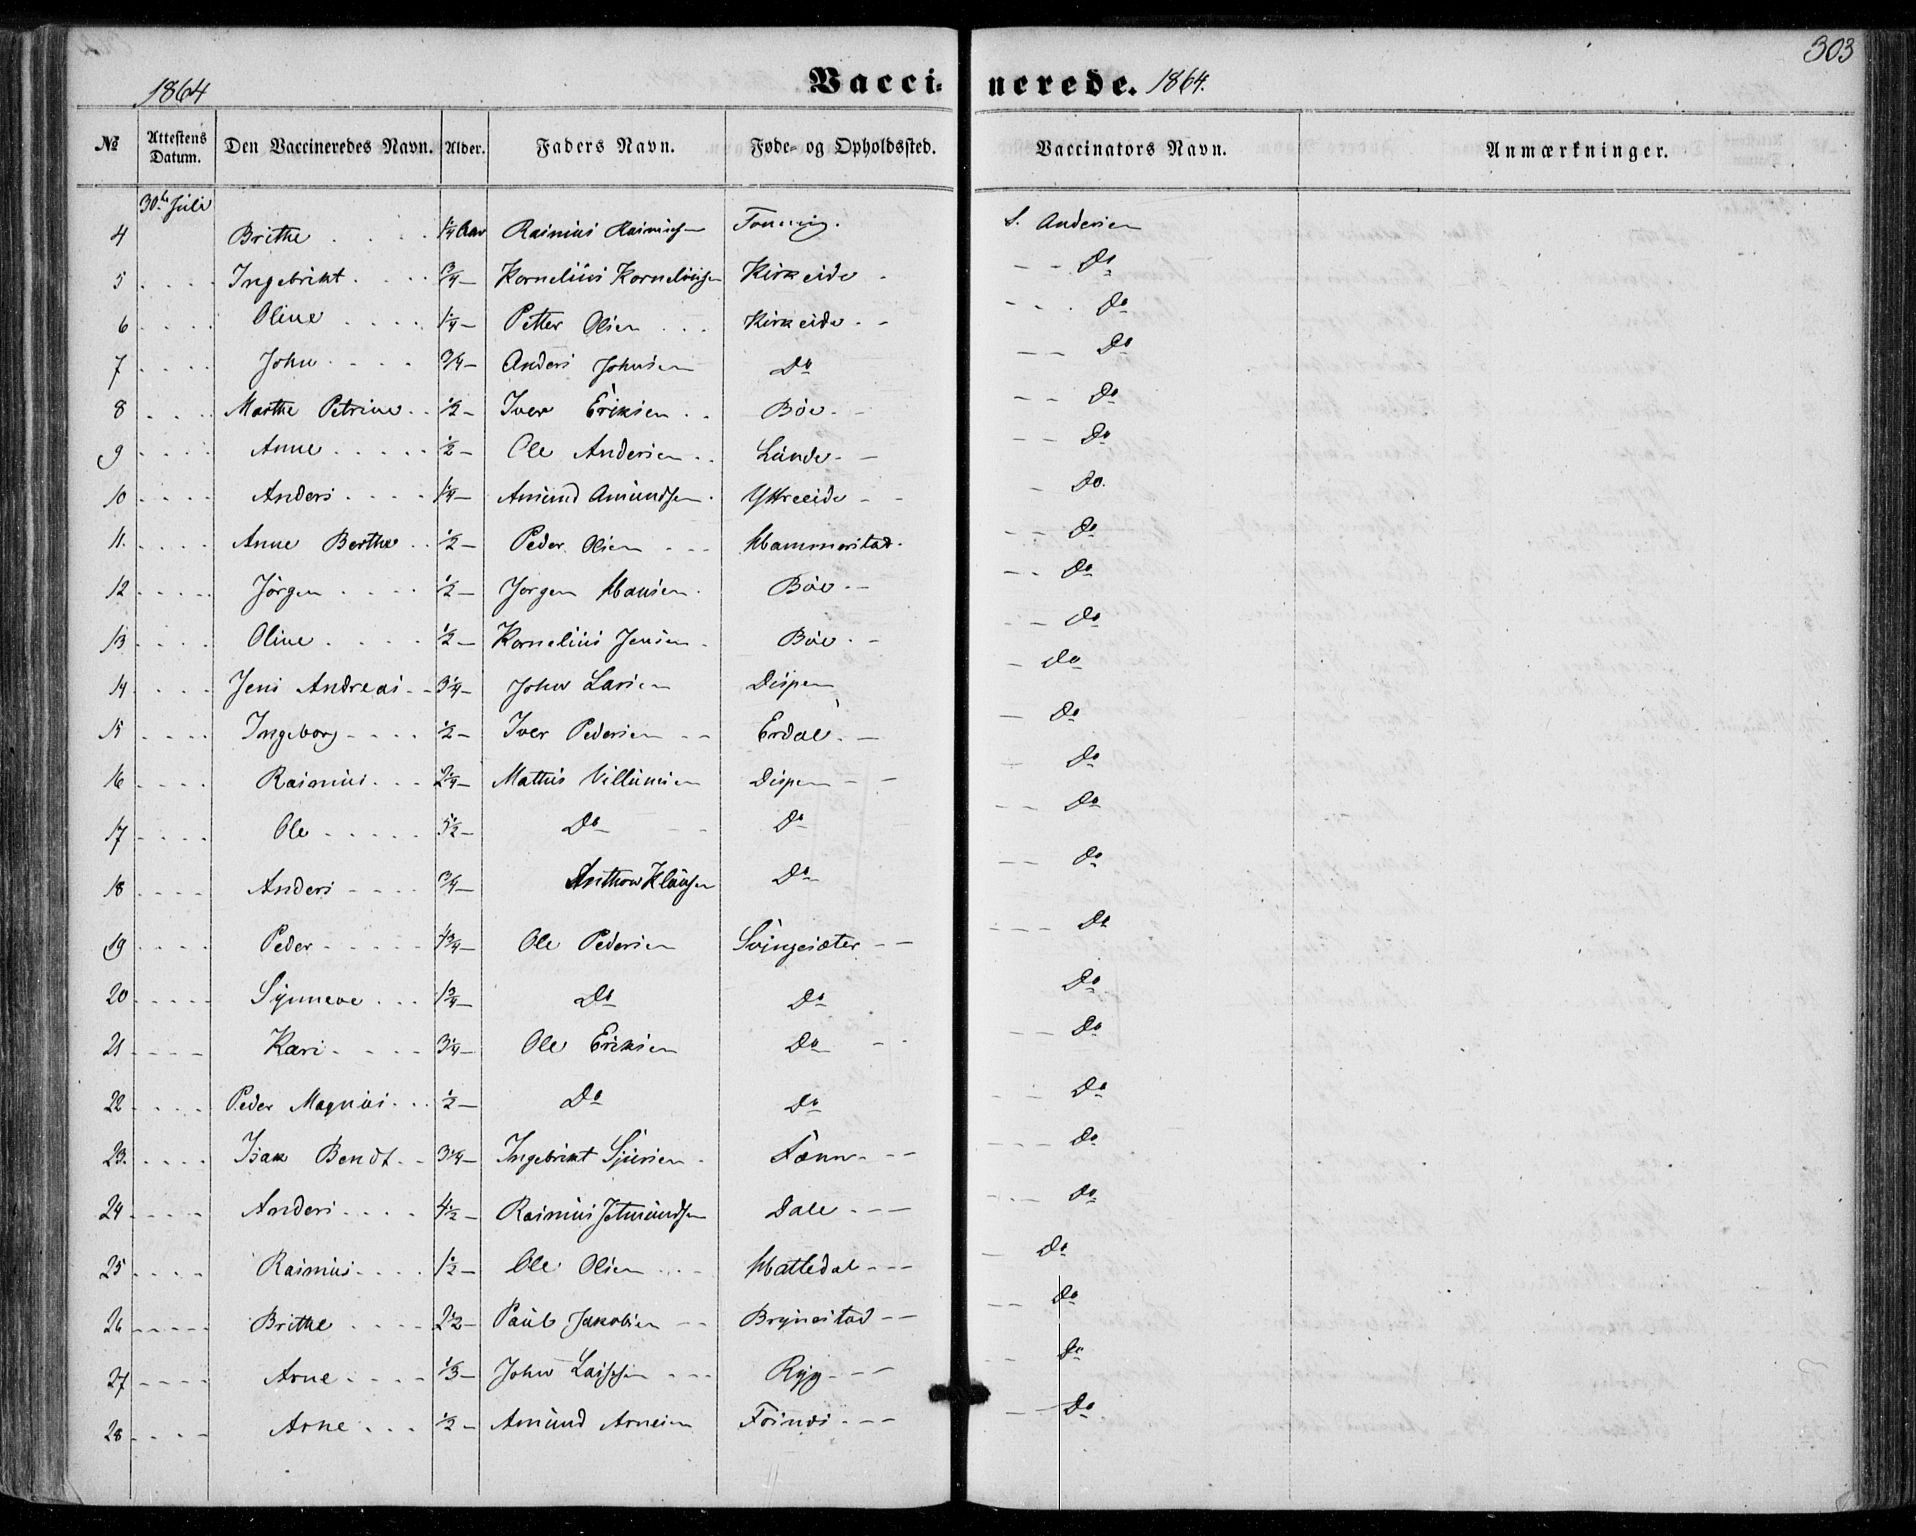 303
1864 Vaccinerede. 1864.
No Attestens Datum. Den Vaccineredes Navn. Alder. Faders Navn. Føde- og Opholdssted. Vaccinators Navn. Anmærkninger.
30te Juli
4 Brithe 1/4 Aar Rasmus Rasmussen S. Andersen
5 Ingebrikt 3/4 Kornelius Korneliusen Kirkeide Do
6 Oline 1/4 Petter Olsen Kirkeide Do
7 John 3/4 Anders Johnsen Do Do
8 Marthe Petrine 1/2 Iver Eriksen Böe Do
9 Anne 1/2 Ole Andersen Lunde Do
10 Anders 1/4 Amund Amundsen Yttreeide Do.
11. Anne Berthe 1/2 Peder Olsen Hammerstad Do
12 Jörgen 1/2 Jörgen Hansen Böe Do
13 Oline 1/2 Kornelius Jensen Böe Do
14 Jens Andreas 3 1/4 John Larsen Dispen Do
15 Ingeborg 1/2 Iver Pedersen Erdal Do
16 Rasmus 2 1/4 Mathis Villumsen Dispen Do
17 Ole 5 1/2 Do Do Do
18 Anders 3/4 Anthon Klausen Do Do
19 Peder 4 3/4 Ole Pedersen Svingesæter Do
20 Synneve 1 3/4 Do Do Do
21 Kari 3 1/4 Ole Eriksen Do Do
22 Peder Magnus 1/2 Do Do Do
23. Isak Bendt 3 1/4 Ingebrikt Sjursen Fænn Do
24 Anders 4 1/2 Rasmus Jetmundsen Dale Do
25 Rasmus 1 1/2 Ole Olsen Hattedal Do
26 Brithe 2 1/2 Paul Jakobsen Brynestad Do
27 Arne 1/3 John Ryg Do
28 Arne 1/2 Amund Arnesen Do